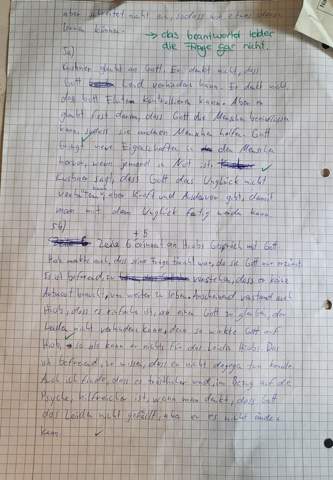 aber schreitet nicht ein, sodass wir etwas daraus
lernen können.
→ das beantwortet leider
die Frage gar nicht.
5a)
Kushner glaubt an Gott. Er denkt nicht, dass
Gott Leid verhindern kann. Er denkt nicht,
das Gott Fluten kontrollieren kann. Aber er
glaubt fest daran, dass Gott die Menschen beeinflussen
kann, sodass sie anderen Menschen helfen. Gott
bringt neue Eigenschaften in den Menschen
hervor, wenn jemand in Not ist. ✓
Kushner sagt, dass Gott das Unglück nicht
verhindern kann, aber Kraft und Ausdauer gibt, damit
man mit dem Unglück fertig werden kann.
5b)
+ 5
Zeile 6 erinnert an Hiobs Gespräch mit Gott.
Hiob merkte auch, dass eine Frage falsch war, da sie Gott
Es ist befreiend, zu verstehen, dass er keine
Antwort braucht, um weiter zu leben. Anscheinend verstand auch
Hiob, dass es einfacher ist, an einen Gott zu glauben, der
Leiden nicht verhindern kann, denn so wirkte Gott auf
Hiob, so als kann er nichts für das Leiden Hiobs. Das
ist befreiend, zu wissen, dass er nichts dagegen tun konnte.
Auch ich finde, dass es tröstlicher und, im Bezug auf die
Psyche, hilfreicher ist, wenn man denkt, dass Gott
das Leiden nicht gefällt, aber er es nicht ändern
kann. ✓